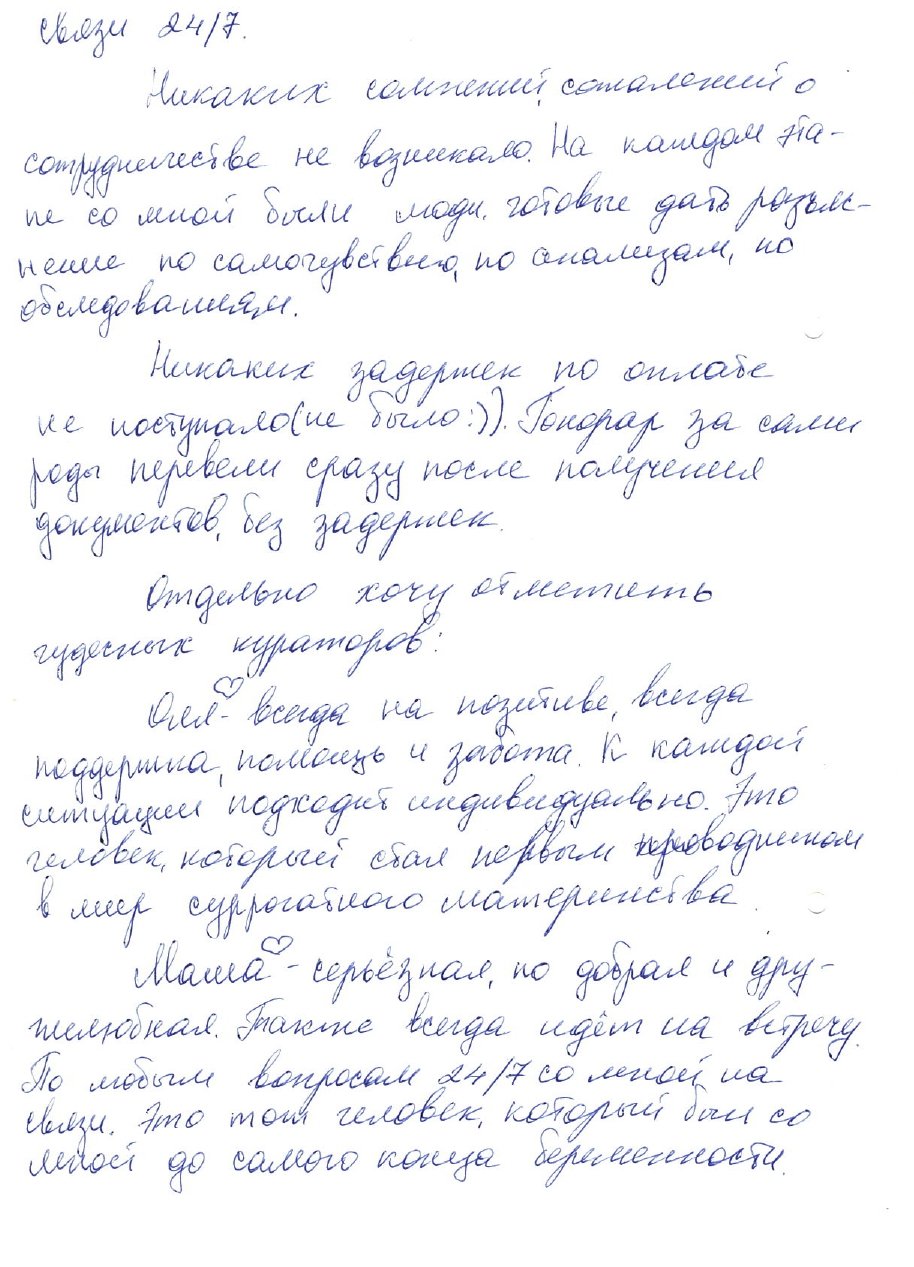 связи 24/7.
Никаких сомнений, сожалений о
сотрудничестве не возникало. На каждом эта-
пе со мной были люди готовые дать разъяс-
нение по самочувствию, по анализам, по
обследованиям.
Никаких задержек по оплате
не поступало (не было :)). Гонорар за сами
роды перевели сразу после получения
документов, без задержек.
Отдельно хочу отметить
чудесных кураторов:
Оля♡- всегда на позитиве, всегда
поддержка, помощь и забота. К каждой
ситуации подходит индивидуально. Это
человек, который стал первым проводником
в мир суррогатного материнства.
Маша♡- серьёзная, но добрая и дру-
желюбная. Также всегда идёт на встречу.
По любым вопросам 24/7 со мной на
связи. Это тот человек, который был со
мной до самого конца беременности.